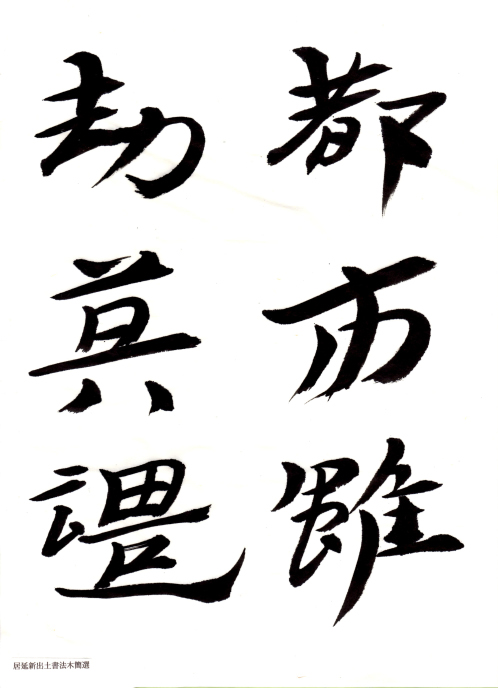 都市雖
劫莫譴
居延新出土書法木簡選